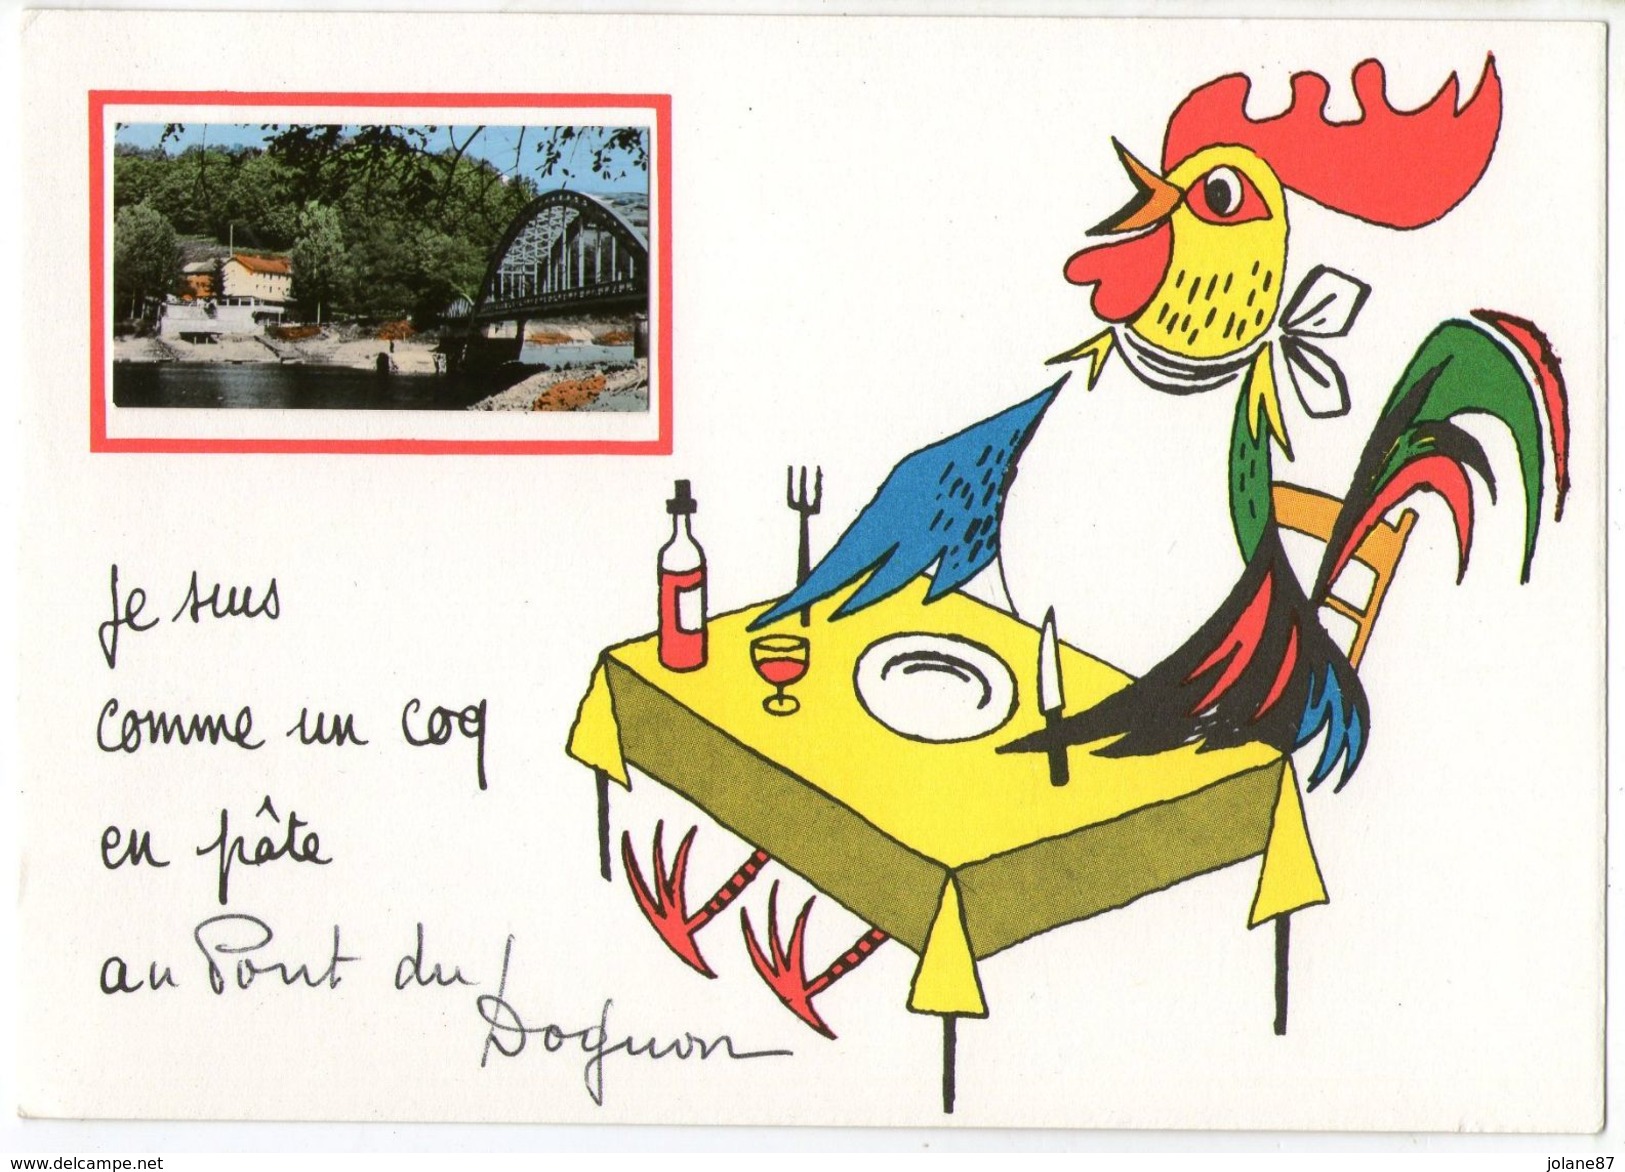 je suis
comme un coq
en pâte
au Pont du
Dognon
www.delcampe.net
jolane87